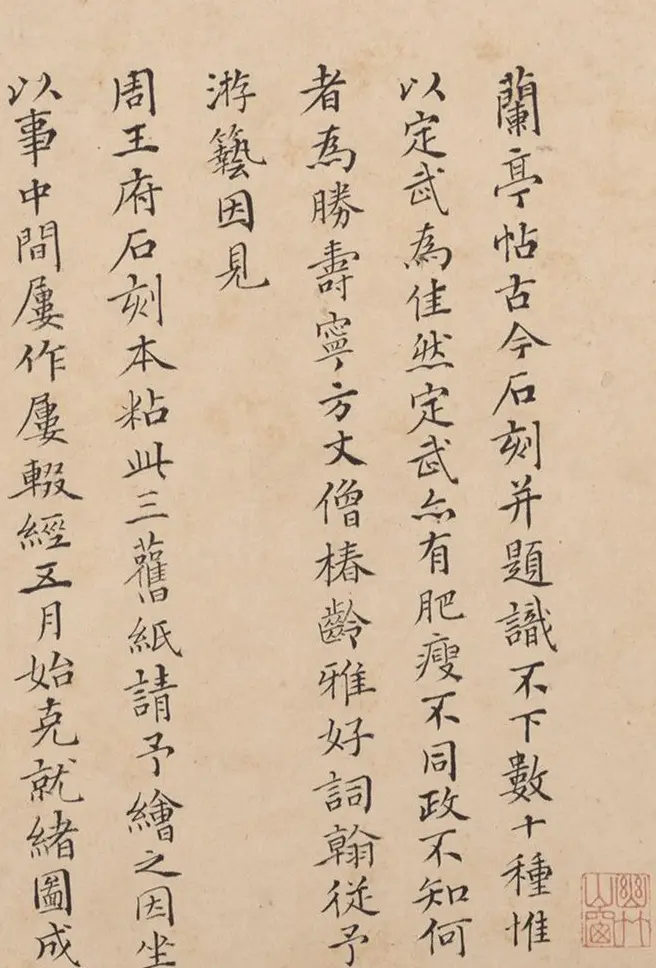 蘭亭帖古今石刻并題識不下數十種惟
以定武為佳然定武亦有肥瘦不同政不知何
者為勝壽寧方丈僧椿齡雅好詞翰從予
游藝因見
周王府石刻本粘此三舊紙請予繪之因坐
以事中間屢作屢輟經五月始克就緒圖成